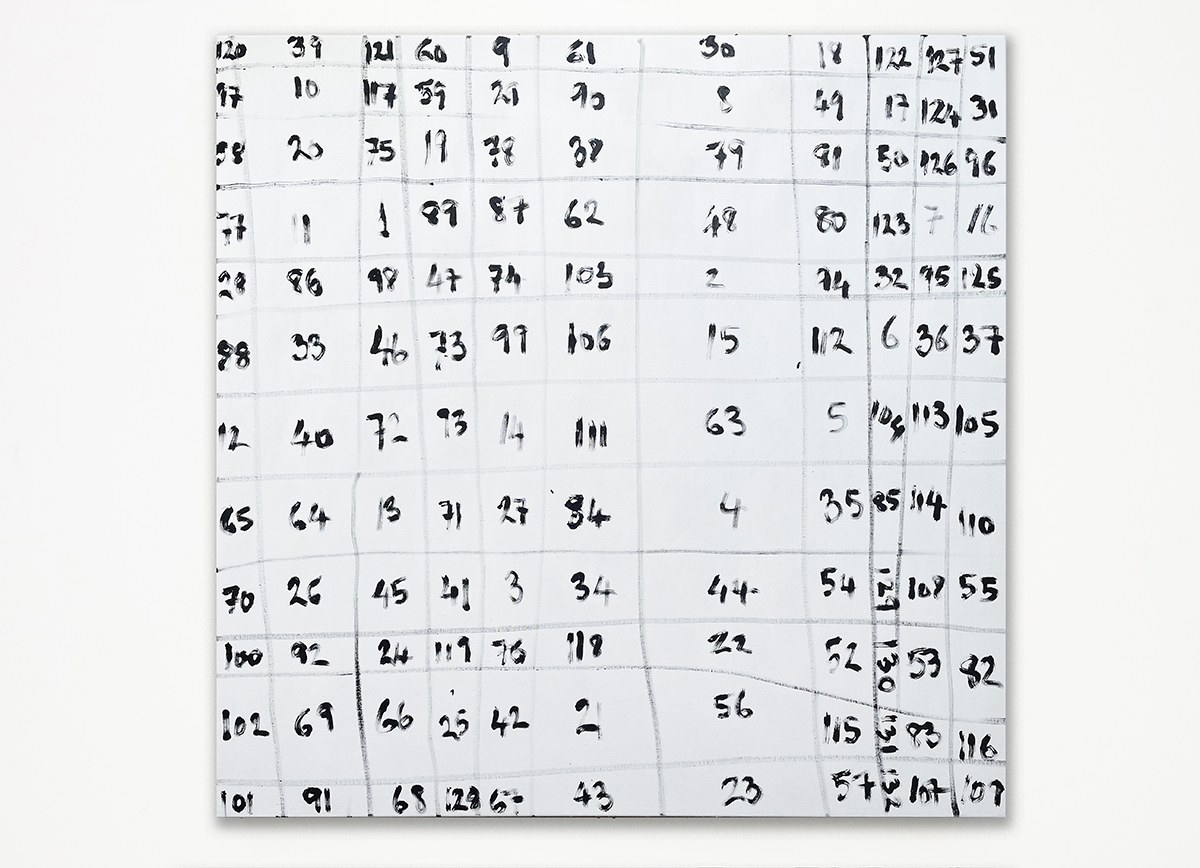 120 39 121 60 9 61 30 18 122 127 51
97 10 117 59 29 90 8 49 17 124 31
58 20 75 19 78 38 79 81 50 126 96
77 11 1 89 87 62 48 80 123 7 16
28 86 98 47 74 103 2 94 32 95 125
88 33 46 73 99 106 15 112 6 36 37
12 40 72 93 14 111 63 5 104 113 105
65 64 13 71 27 84 4 35 85 114 110
70 26 45 41 3 34 44 54 129 108 55
100 92 24 119 76 118 22 52 130 53 82
102 69 66 25 42 21 56 115 131 83 116
101 91 68 128 67 43 23 57 132 107 109